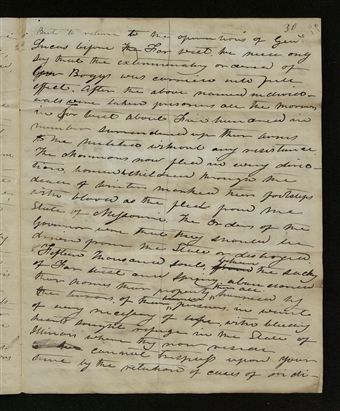 30
But to return to the operations of Genl
Lucas before the Far West, we need only
say that the exterminating orders of
Govr Boggs was carried into full
effect. After the above named individ-
uals were taken prisoners all the Mormons
in Far West about five hundred in
number surrendered up their arms
to the militia without any resistance
The Mormons now fled in every direc-
tion, women & children through the
dead of winter marked their footsteps
with blood as the fled from the
State of Missouri. The orders of the
Governor were that they should be
driven from the State or destroyed
Fifteen thousand souls, between the sacking
of Far West and spring abandoned
their homes their property their all hurried by
the terrors of their pursuers in want
of every necessary of life, who bleeding
hearts sought refuge in the State of
Illinois where they now reside.
We cannot trespass upon your
time by the relation of cases of indi-